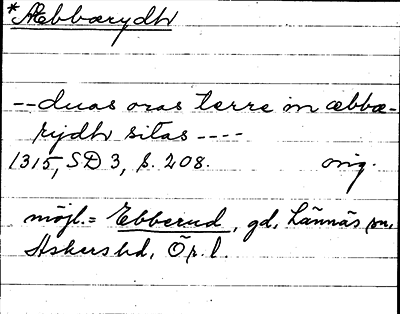 *Æbbærydh
-- duas oras terre in æbbæ-
rijdh sitas ----
1315, SD 3, s. 208. orig.
möjl. = Ebberud, gd, Lännäs sn,
Askers hd, Ör. l.